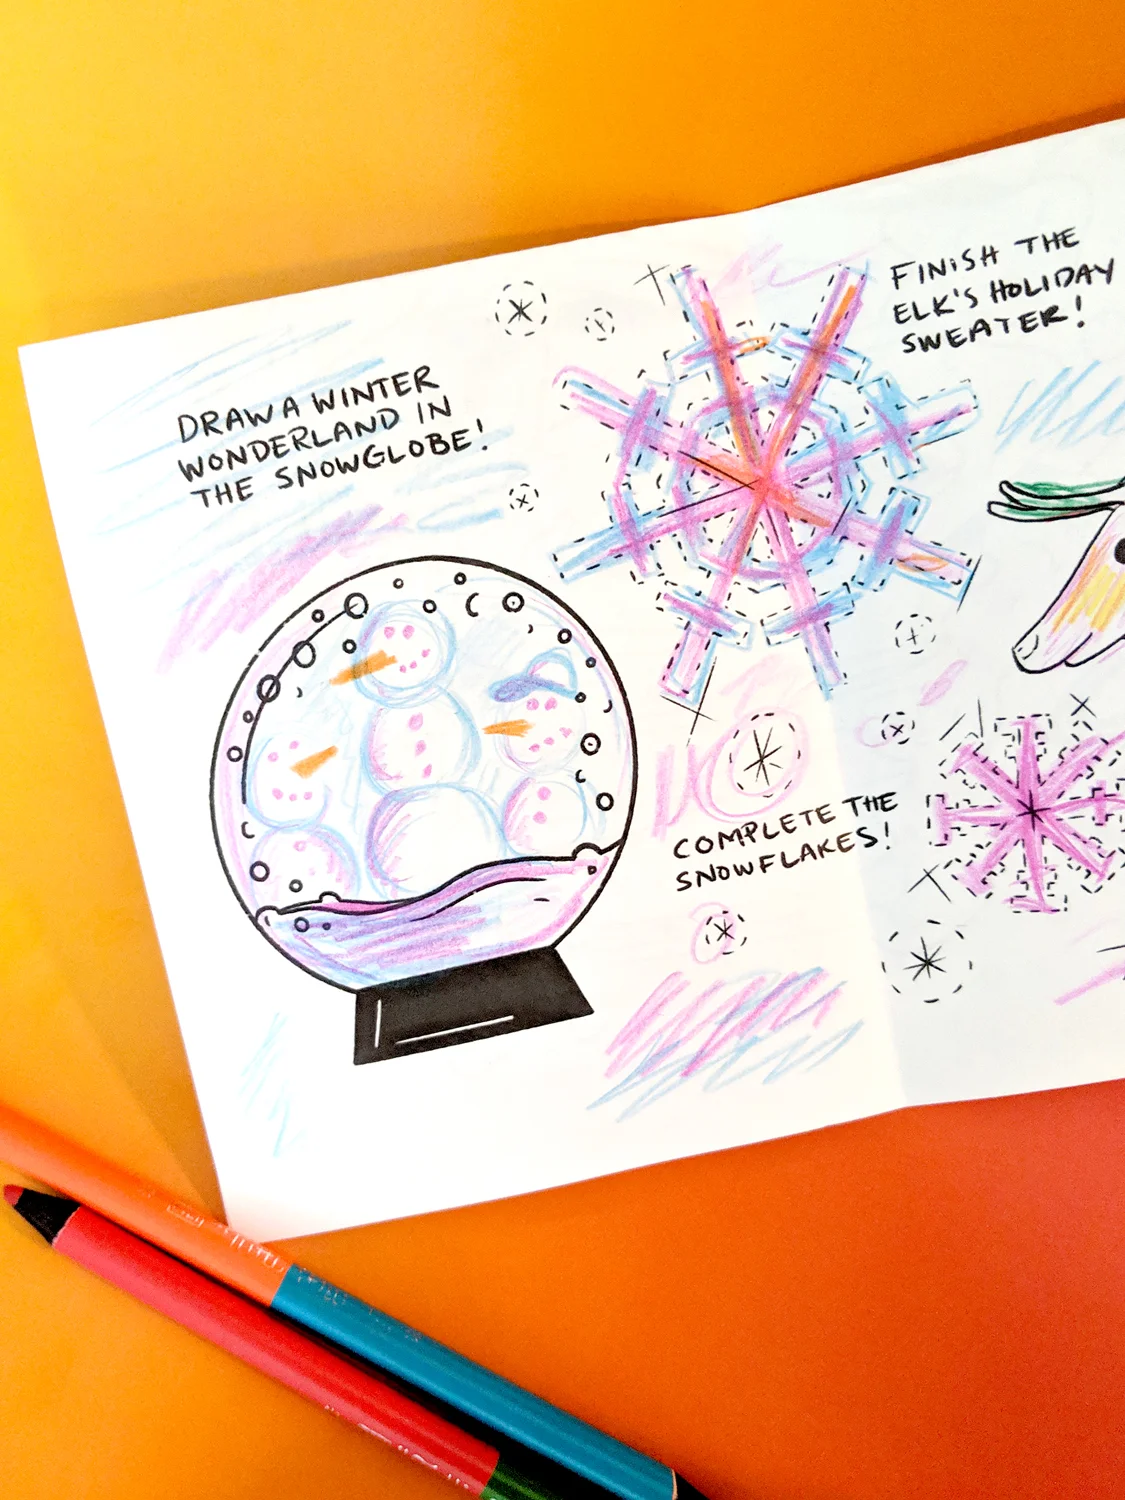 DRAW A WINTER
WONDERLAND IN
THE SNOWGLOBE!
FINISH THE
ELK'S HOLIDAY
SWEATER!
COMPLETE THE
SNOWFLAKES!